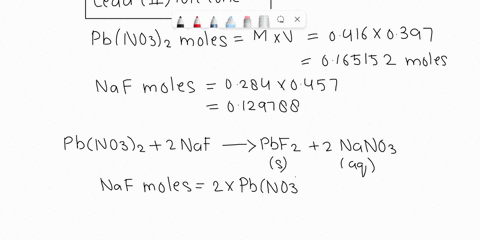 Lead (II) ion
Pb(NO3)2 moles = M×V = 0.416×0.397
= 0.165152 moles
NaF moles = 0.284×0.457
= 0.129788
Pb(NO3)2 + 2 NaF ⟶ PbF2 + 2 NaNO3
(s) (aq)
NaF moles = 2× Pb(NO3